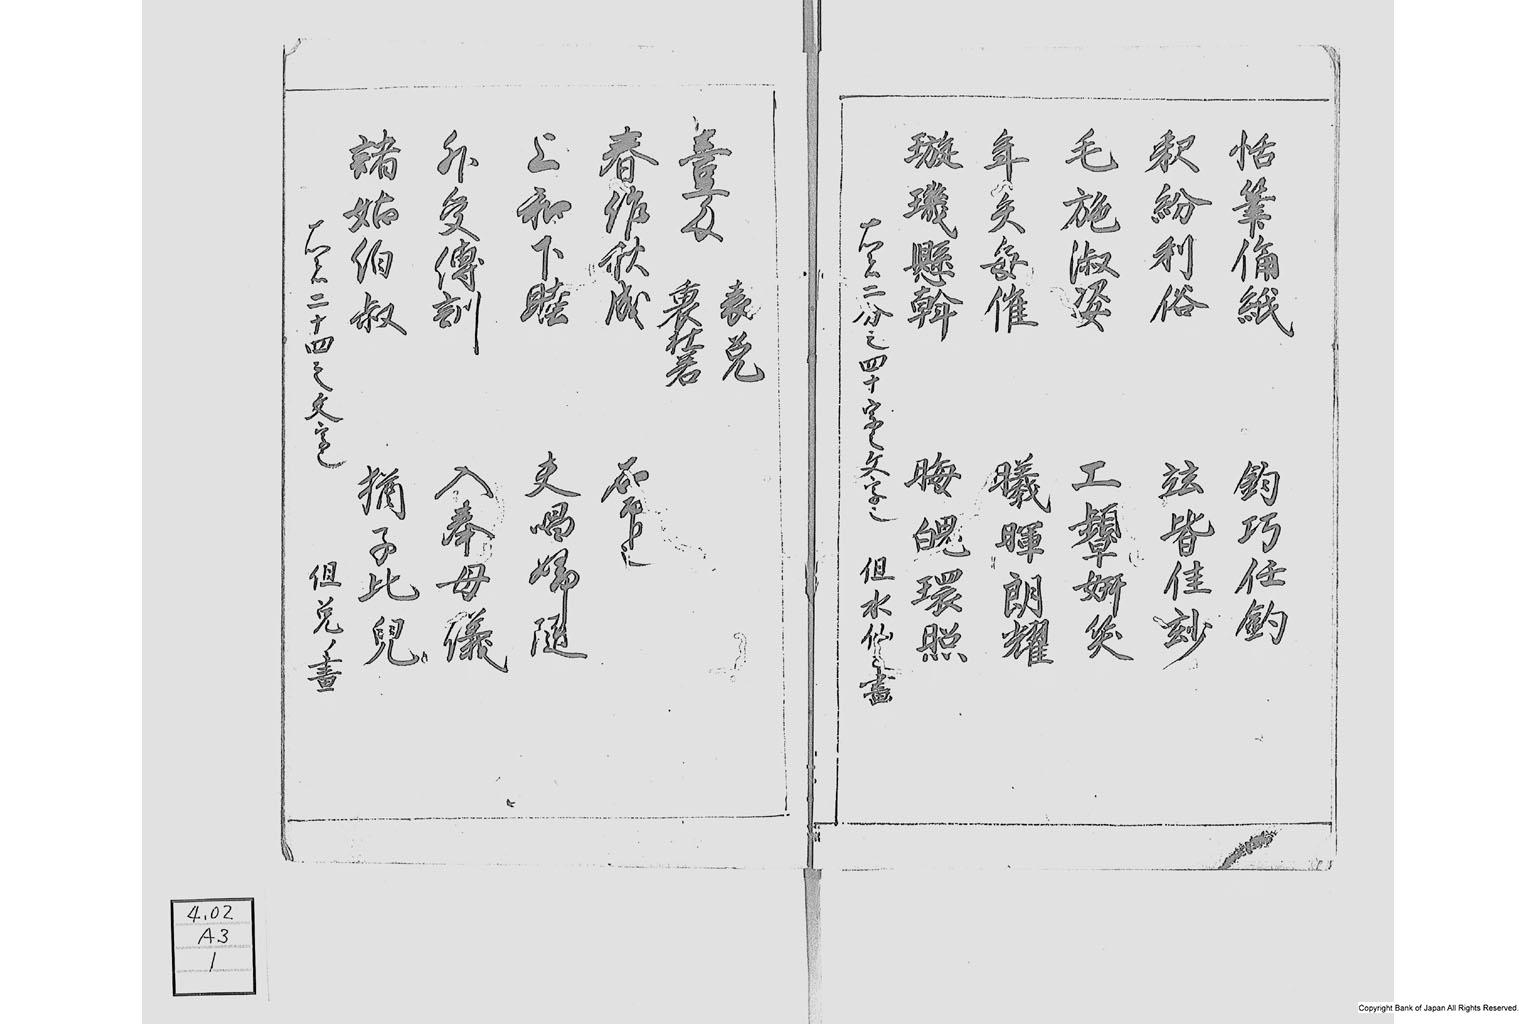 恬筆倫紙 鈞巧任釣
釈紛利俗 竝皆佳玅
毛施淑姿 工顰妍笑
年矢每催 曦暉朗耀
璇璣懸斡 晦魄環照
右之二分之四十字之文字也 但水仙ノ畫
壹匁
表 兎
裏 杜若
春作秋成 右印也
上和下睦 夫唱婦随
外受傅訓 入奉母儀
諸姑伯叔 猶子比兒
右之二十四之文字也 但兎ノ畫
4.02
A3
1
Copyright Bank of Japan All Rights Reserved.